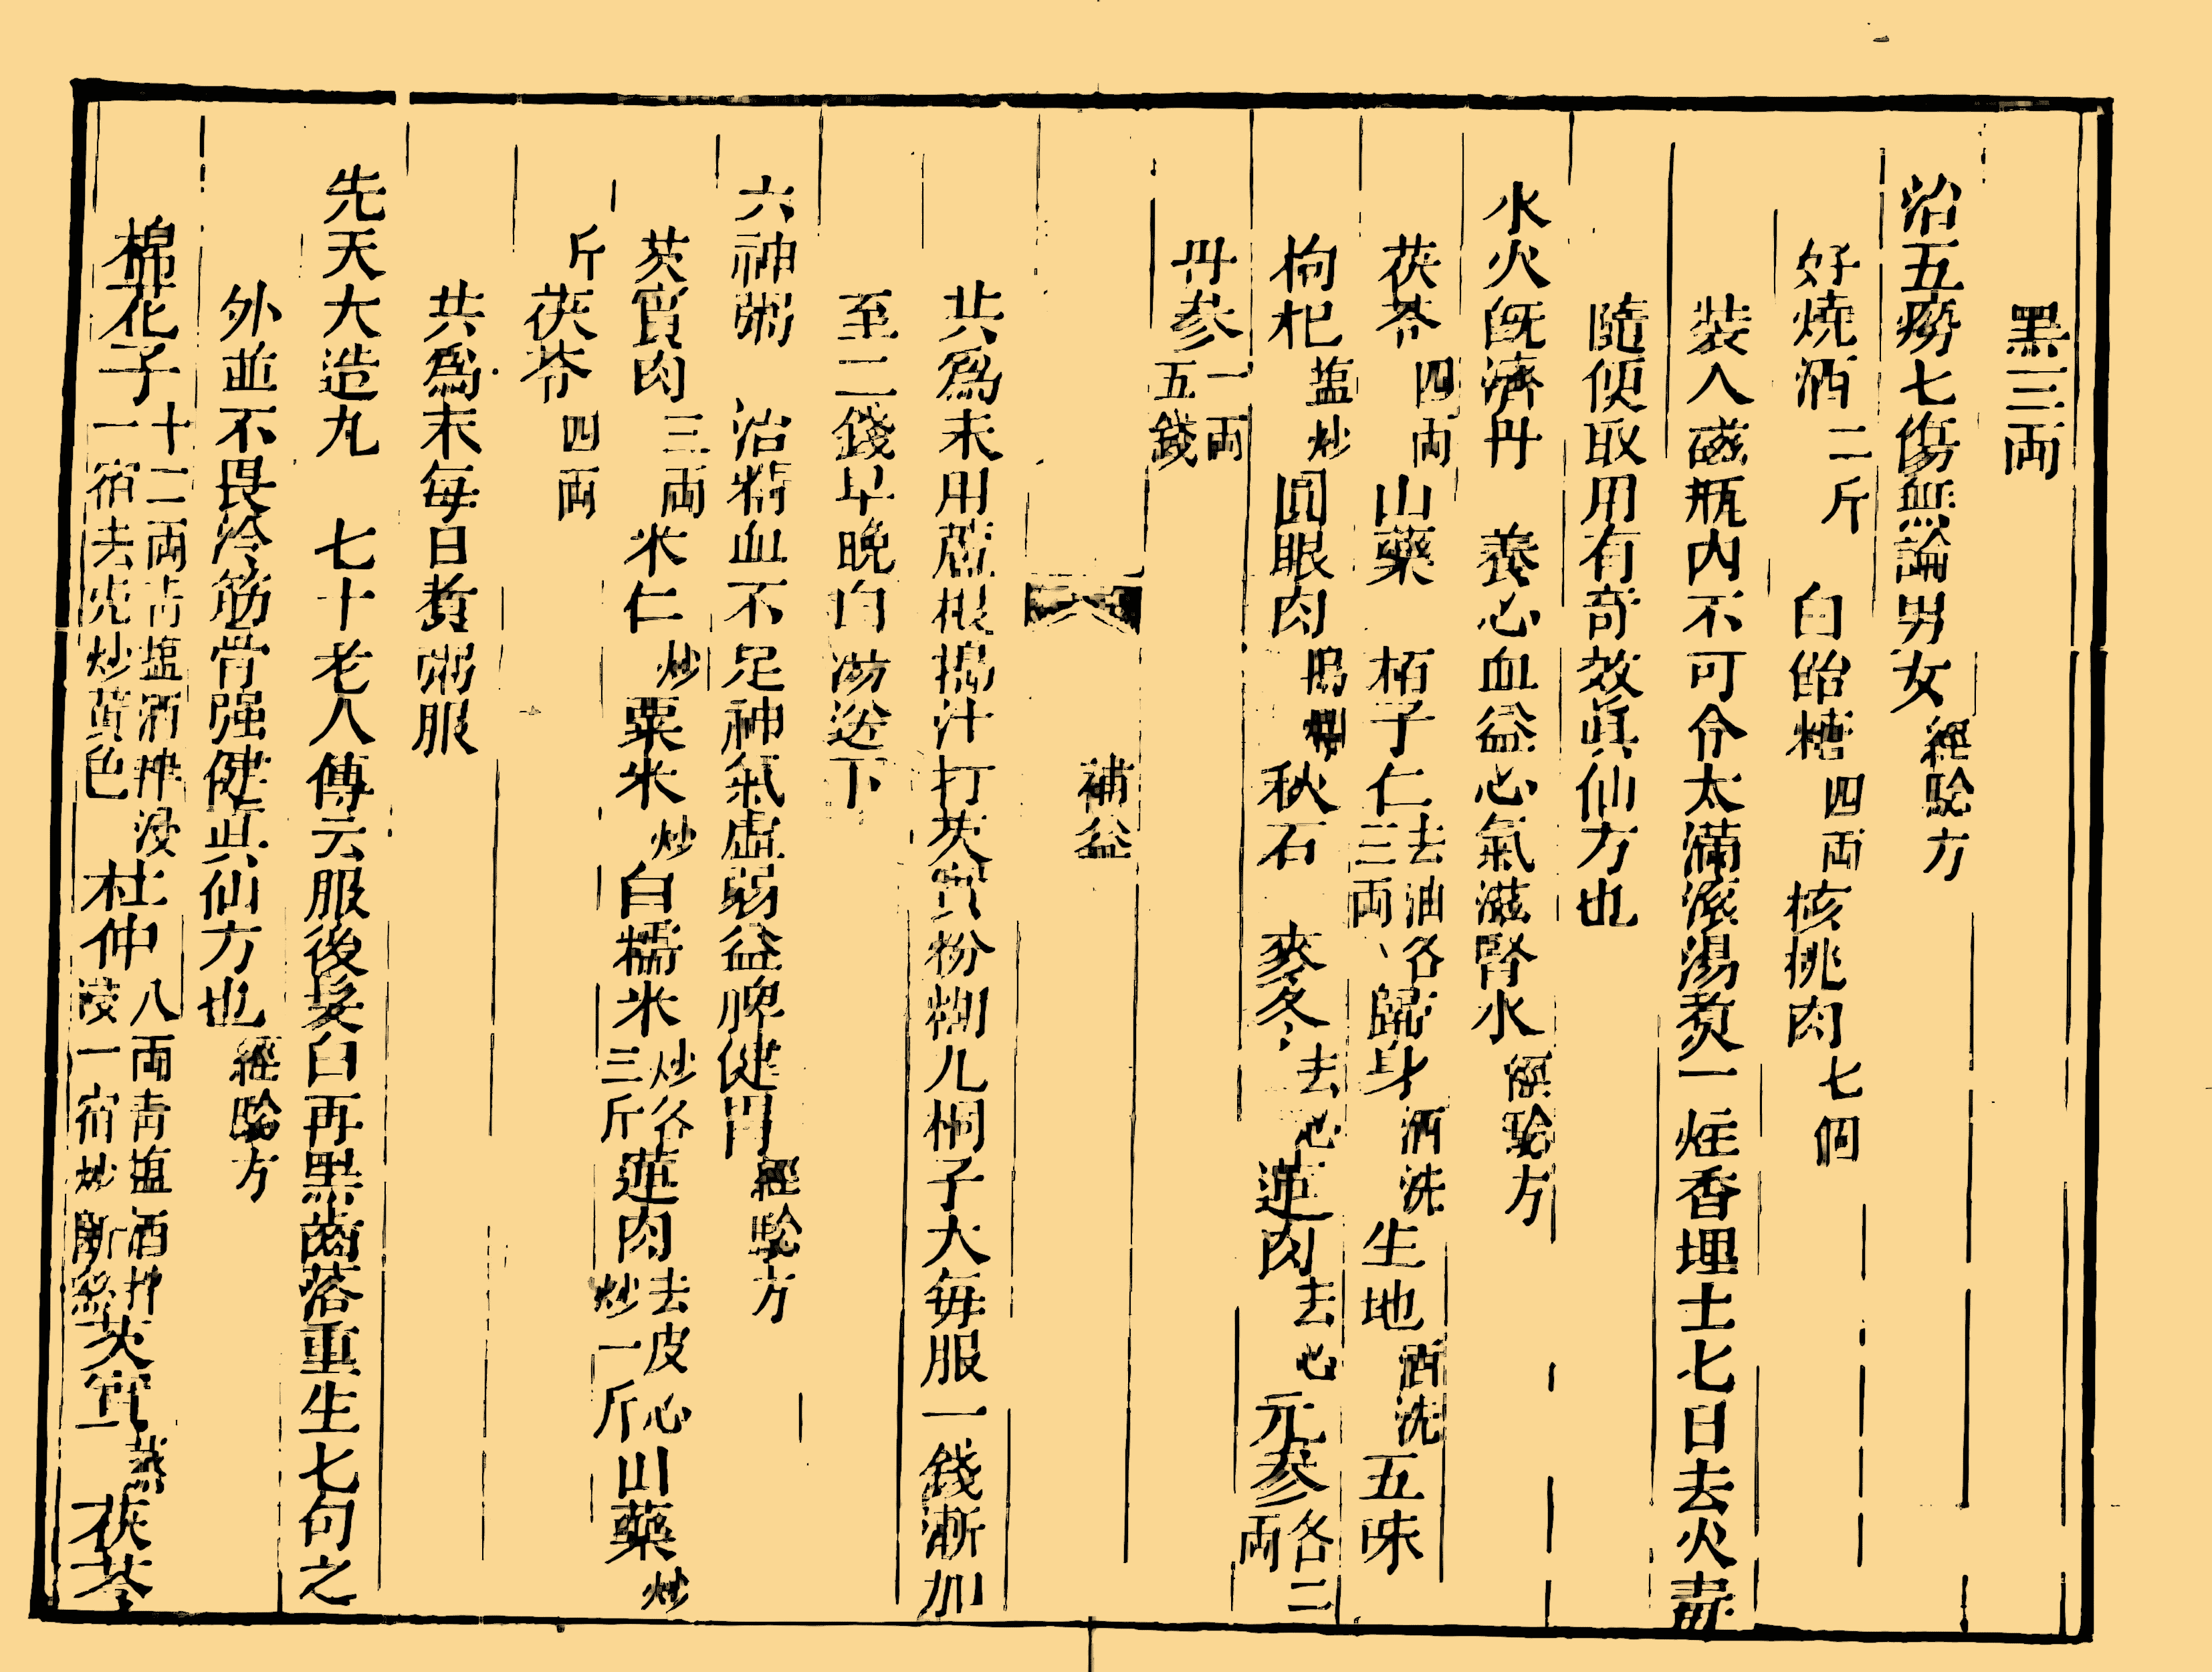 黑三両
治五癆七傷無論男女經驗方
好燒酒二斤白飴糖四両核桃肉七個
裝入磁瓶內不可令太滿滾湯煑一炷香埋土七日去火毒
隨便取用有竒效真仙方也
水火旣濟丹 養心血益心氣滋腎水經驗方
茯苓四両山藥 栢子仁去油各三両歸身酒洗生地酒洗五味
枸杞塩炒圓眼肉秋石 麥冬去心蓮肉去心元參各二両
丹參一両五錢
補益
共爲末用蘆根搗汁打芡實粉糊凡桐子大每服一錢漸加
至二錢早晚白湯送下
六神粥 治精血不足神氣虛弱益脾健胃經驗方
芡實肉三両米仁炒粟米炒白糯米炒各三斤蓮肉去皮心炒一斤山藥炒
斤茯苓四両
共爲末每日煑粥服
先天大造丸 七十老人傳云服後髮白再黑齒落重生七旬之
外並不畏冷筋骨强健真仙方也經驗方
棉花子十二両青塩酒拌浸一宿去売炒黃色杜仲八両青塩酒拌浸一宿炒斷絲芡實蒸茯苓